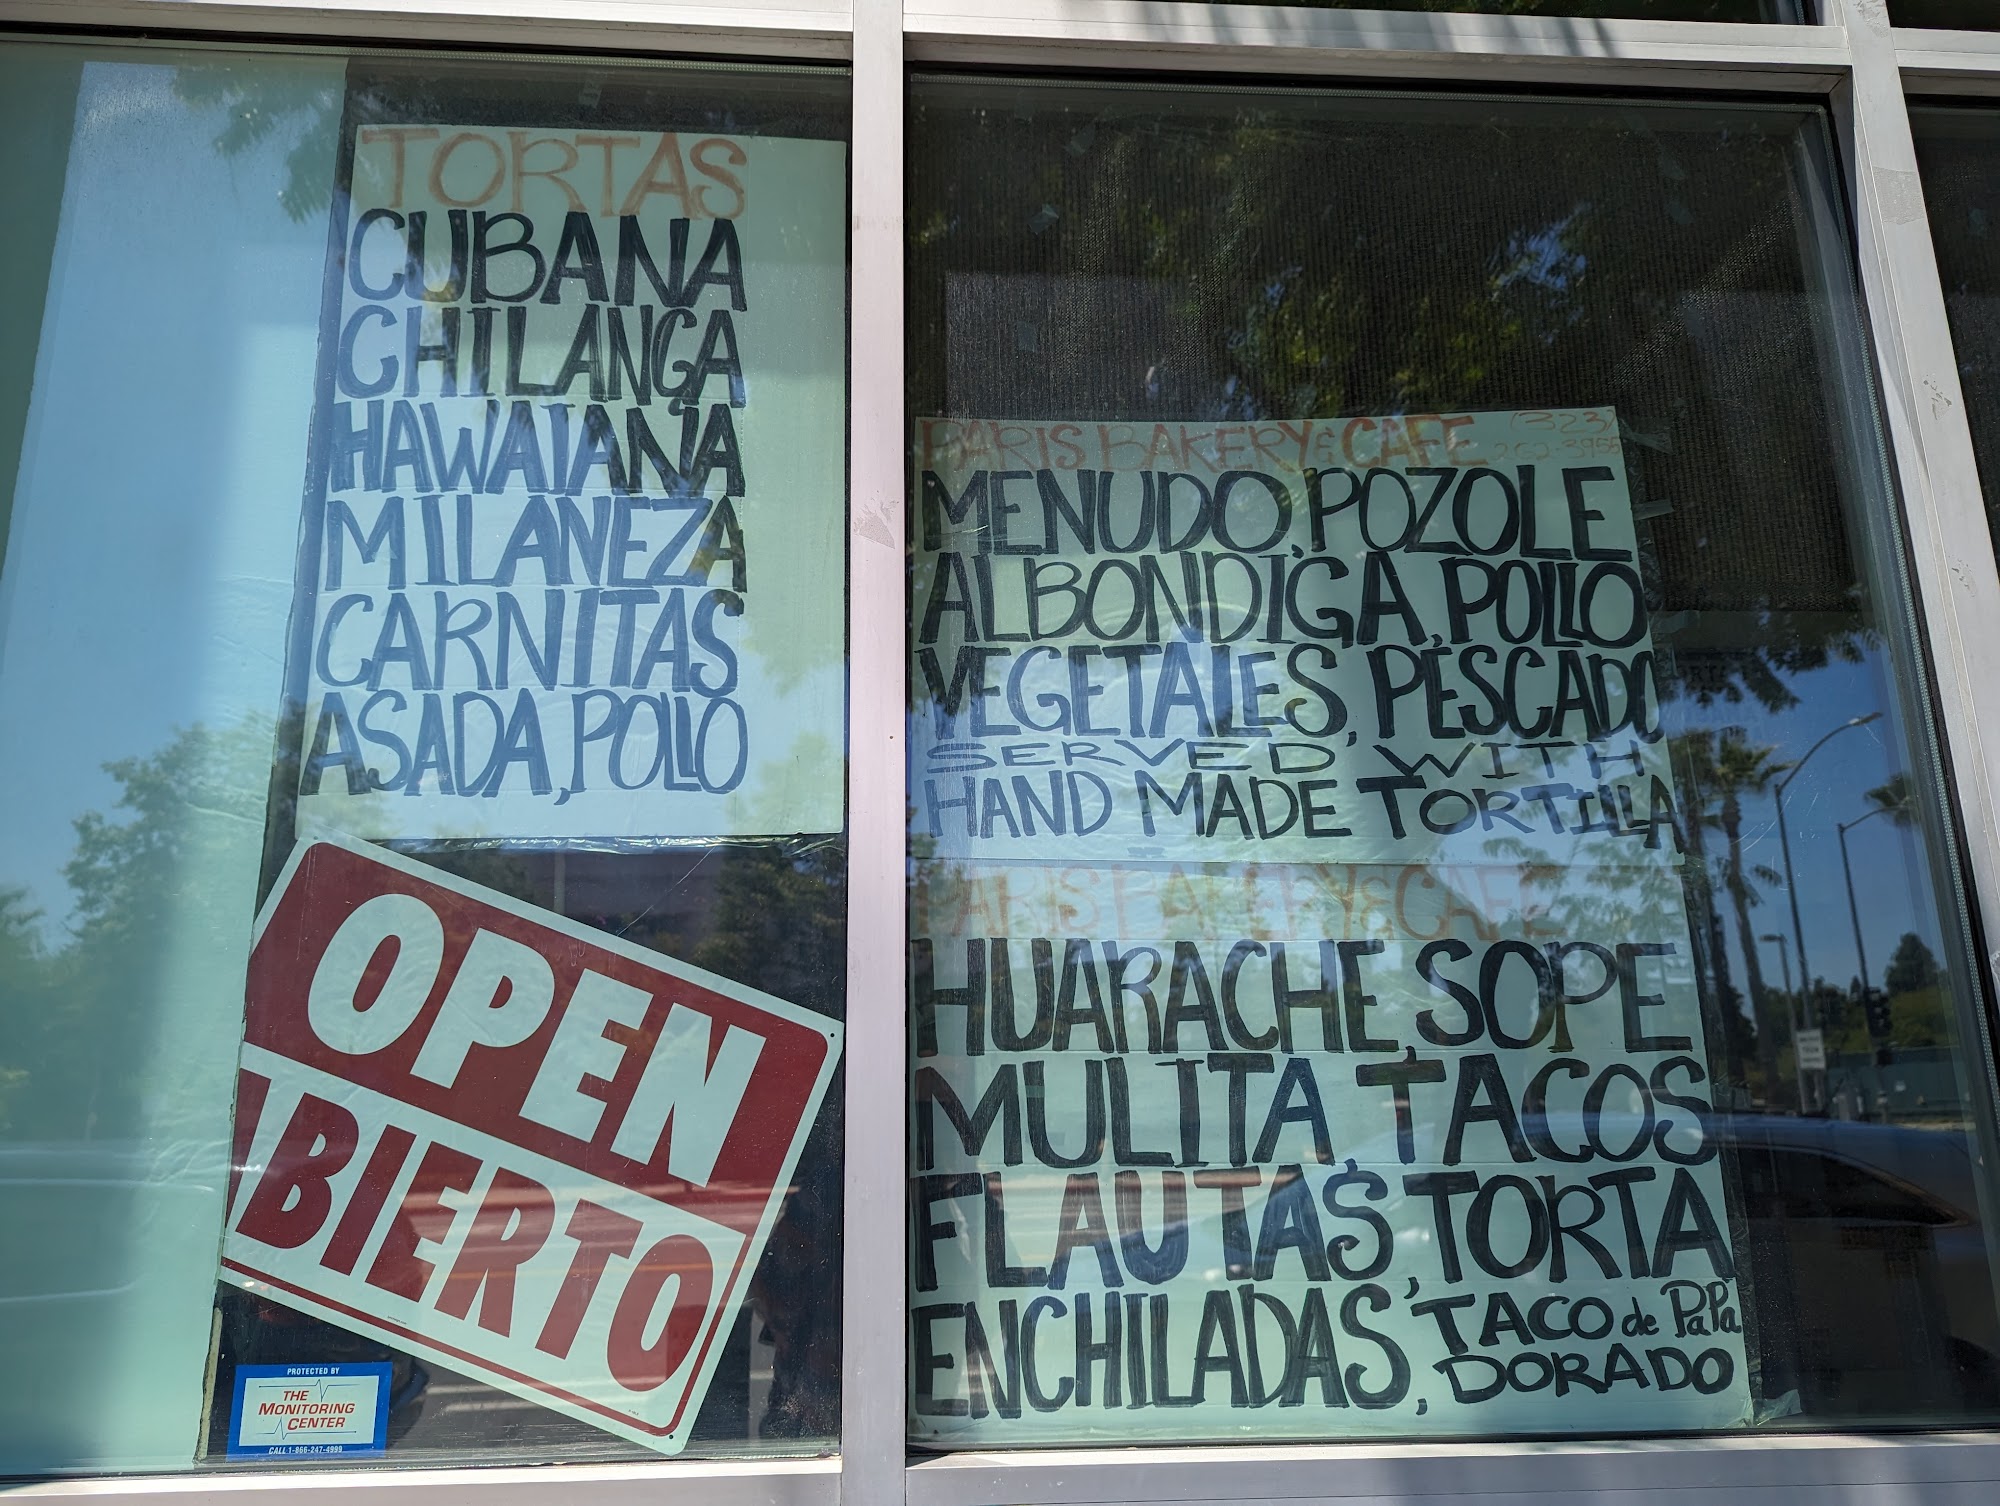 TORTAS
CUBANA
CHILANGA
HAWAIANA
MILANEZA
CARNITAS
ASADA, POLLO
OPEN
ABIERTO
PROTECTED BY
THE
MONITORING
CENTER
CALL 1-866-247-4999
PARIS BAKERY & CAFE (323)
MENUDO, POZOLE
ALBONDIGA, POLLO
VEGETALES, PESCADO
SERVED WITH
HAND MADE TORTILLA
PARIS BAKERY & CAFE
HUARACHE, SOPE
MULITA, TACOS
FLAUTAS, TORTA
ENCHILADAS, TACO de PaPa
DORADO